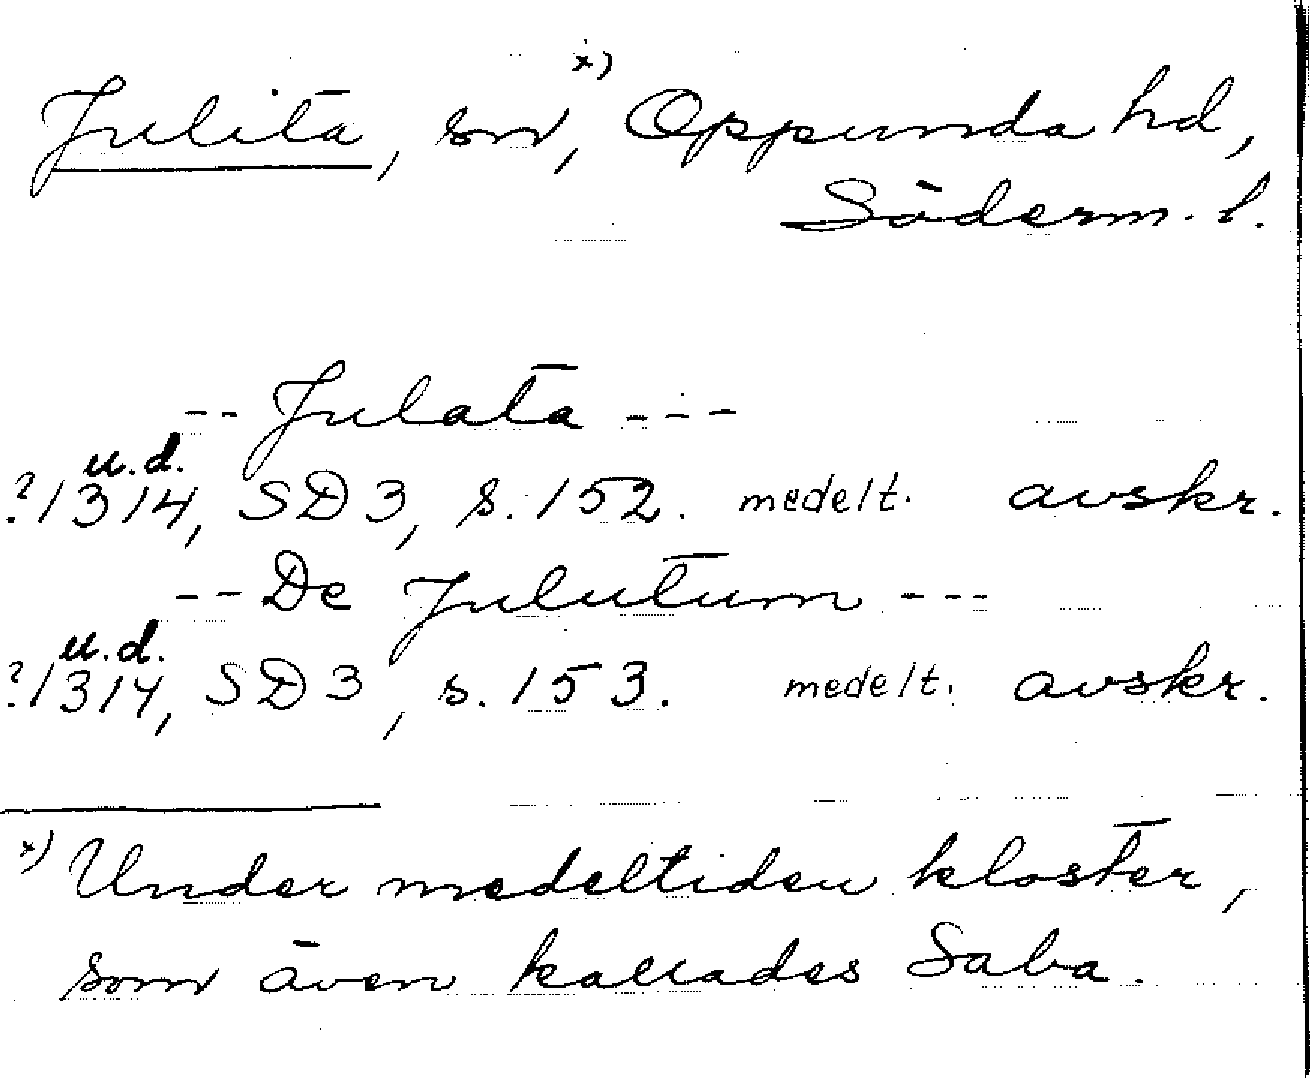 Julita, sn, x) Oppunda hd,
Söderm. l.
-- Julata ---
u.d.
?1314, SD 3, s. 152. medelt. avskr.
-- De Julutum ---
u.d.
?1314, SD 3, s. 153. medelt. avskr.
x) Under medeltiden kloster,
som även kallades Saba.